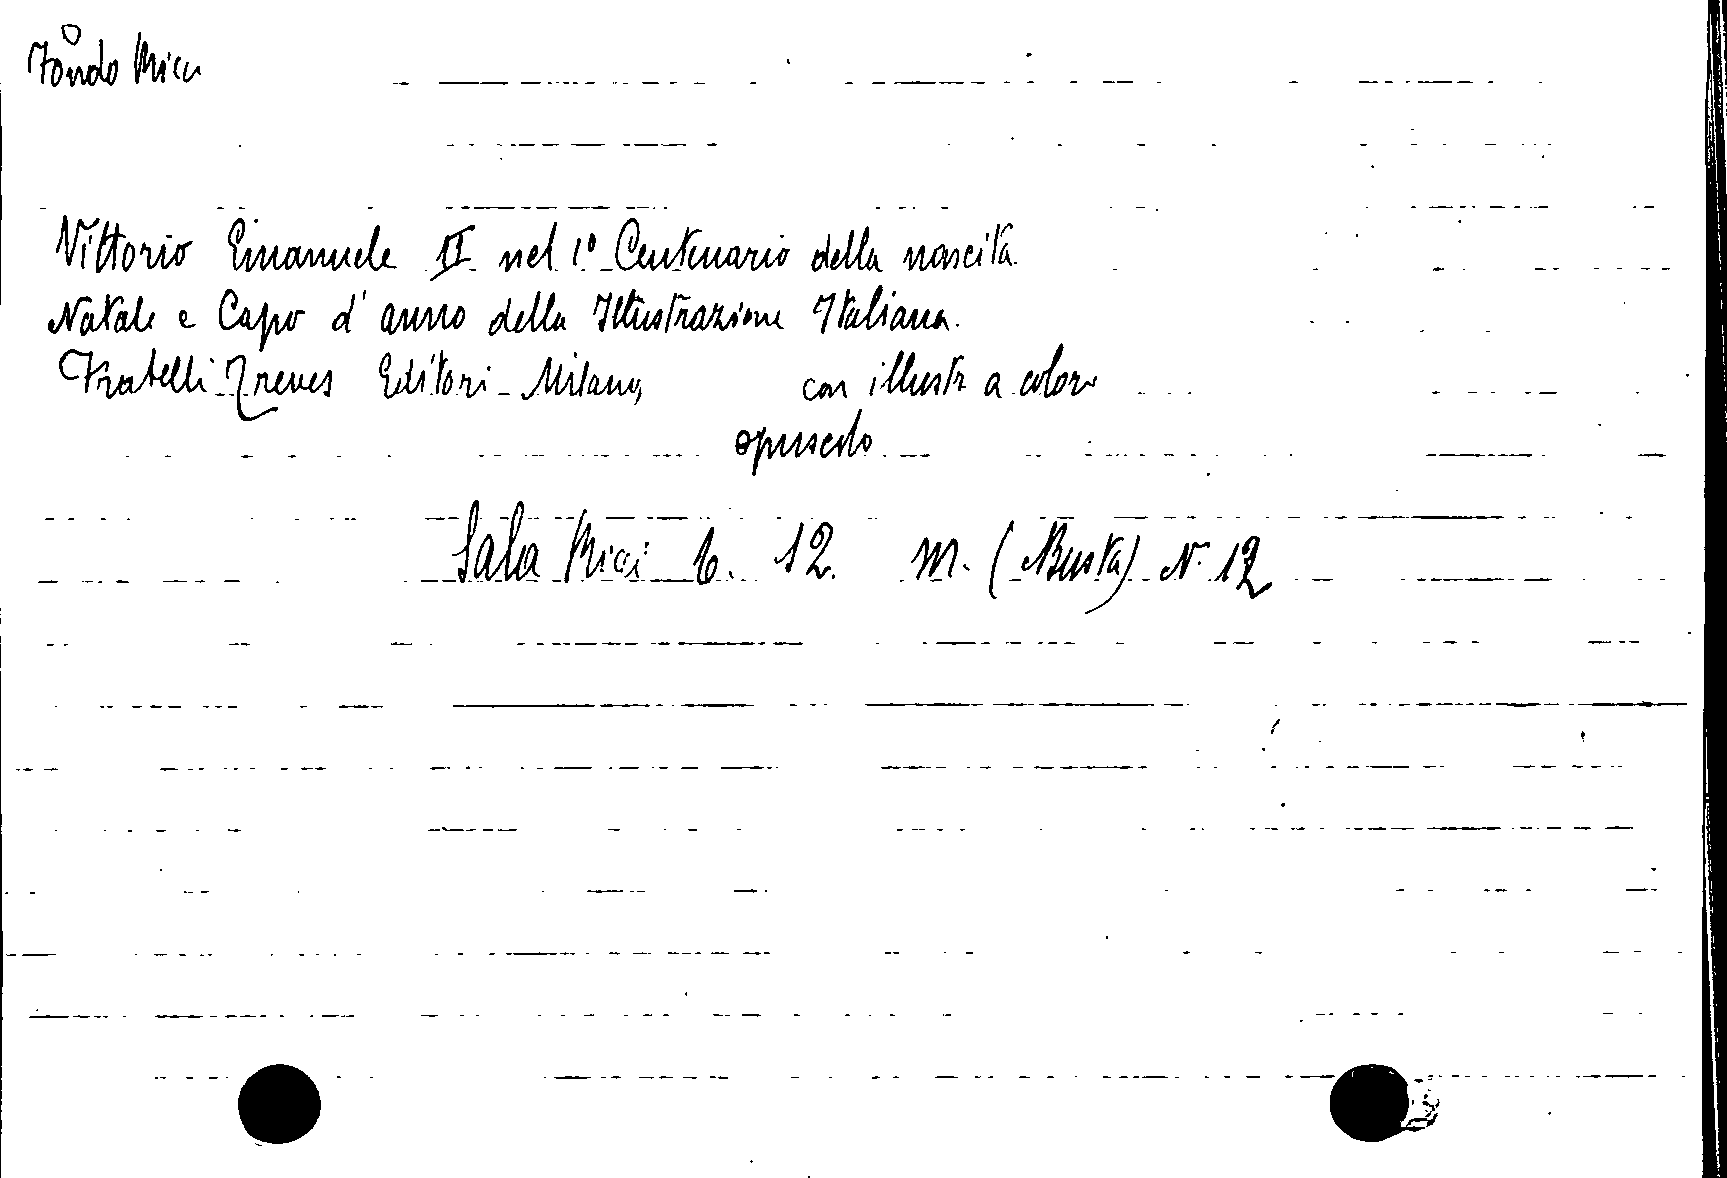 Fondo Ricci
Vittorio Emanuele II nel 1º Centenario della nascita
Natale e Capo d'anno della Illustrazione Italiana.
Fratelli Treves Editori - Milano, con illustr a colori
opuscolo
Sala Ricci 6. 12. M. (Busta) N. 12